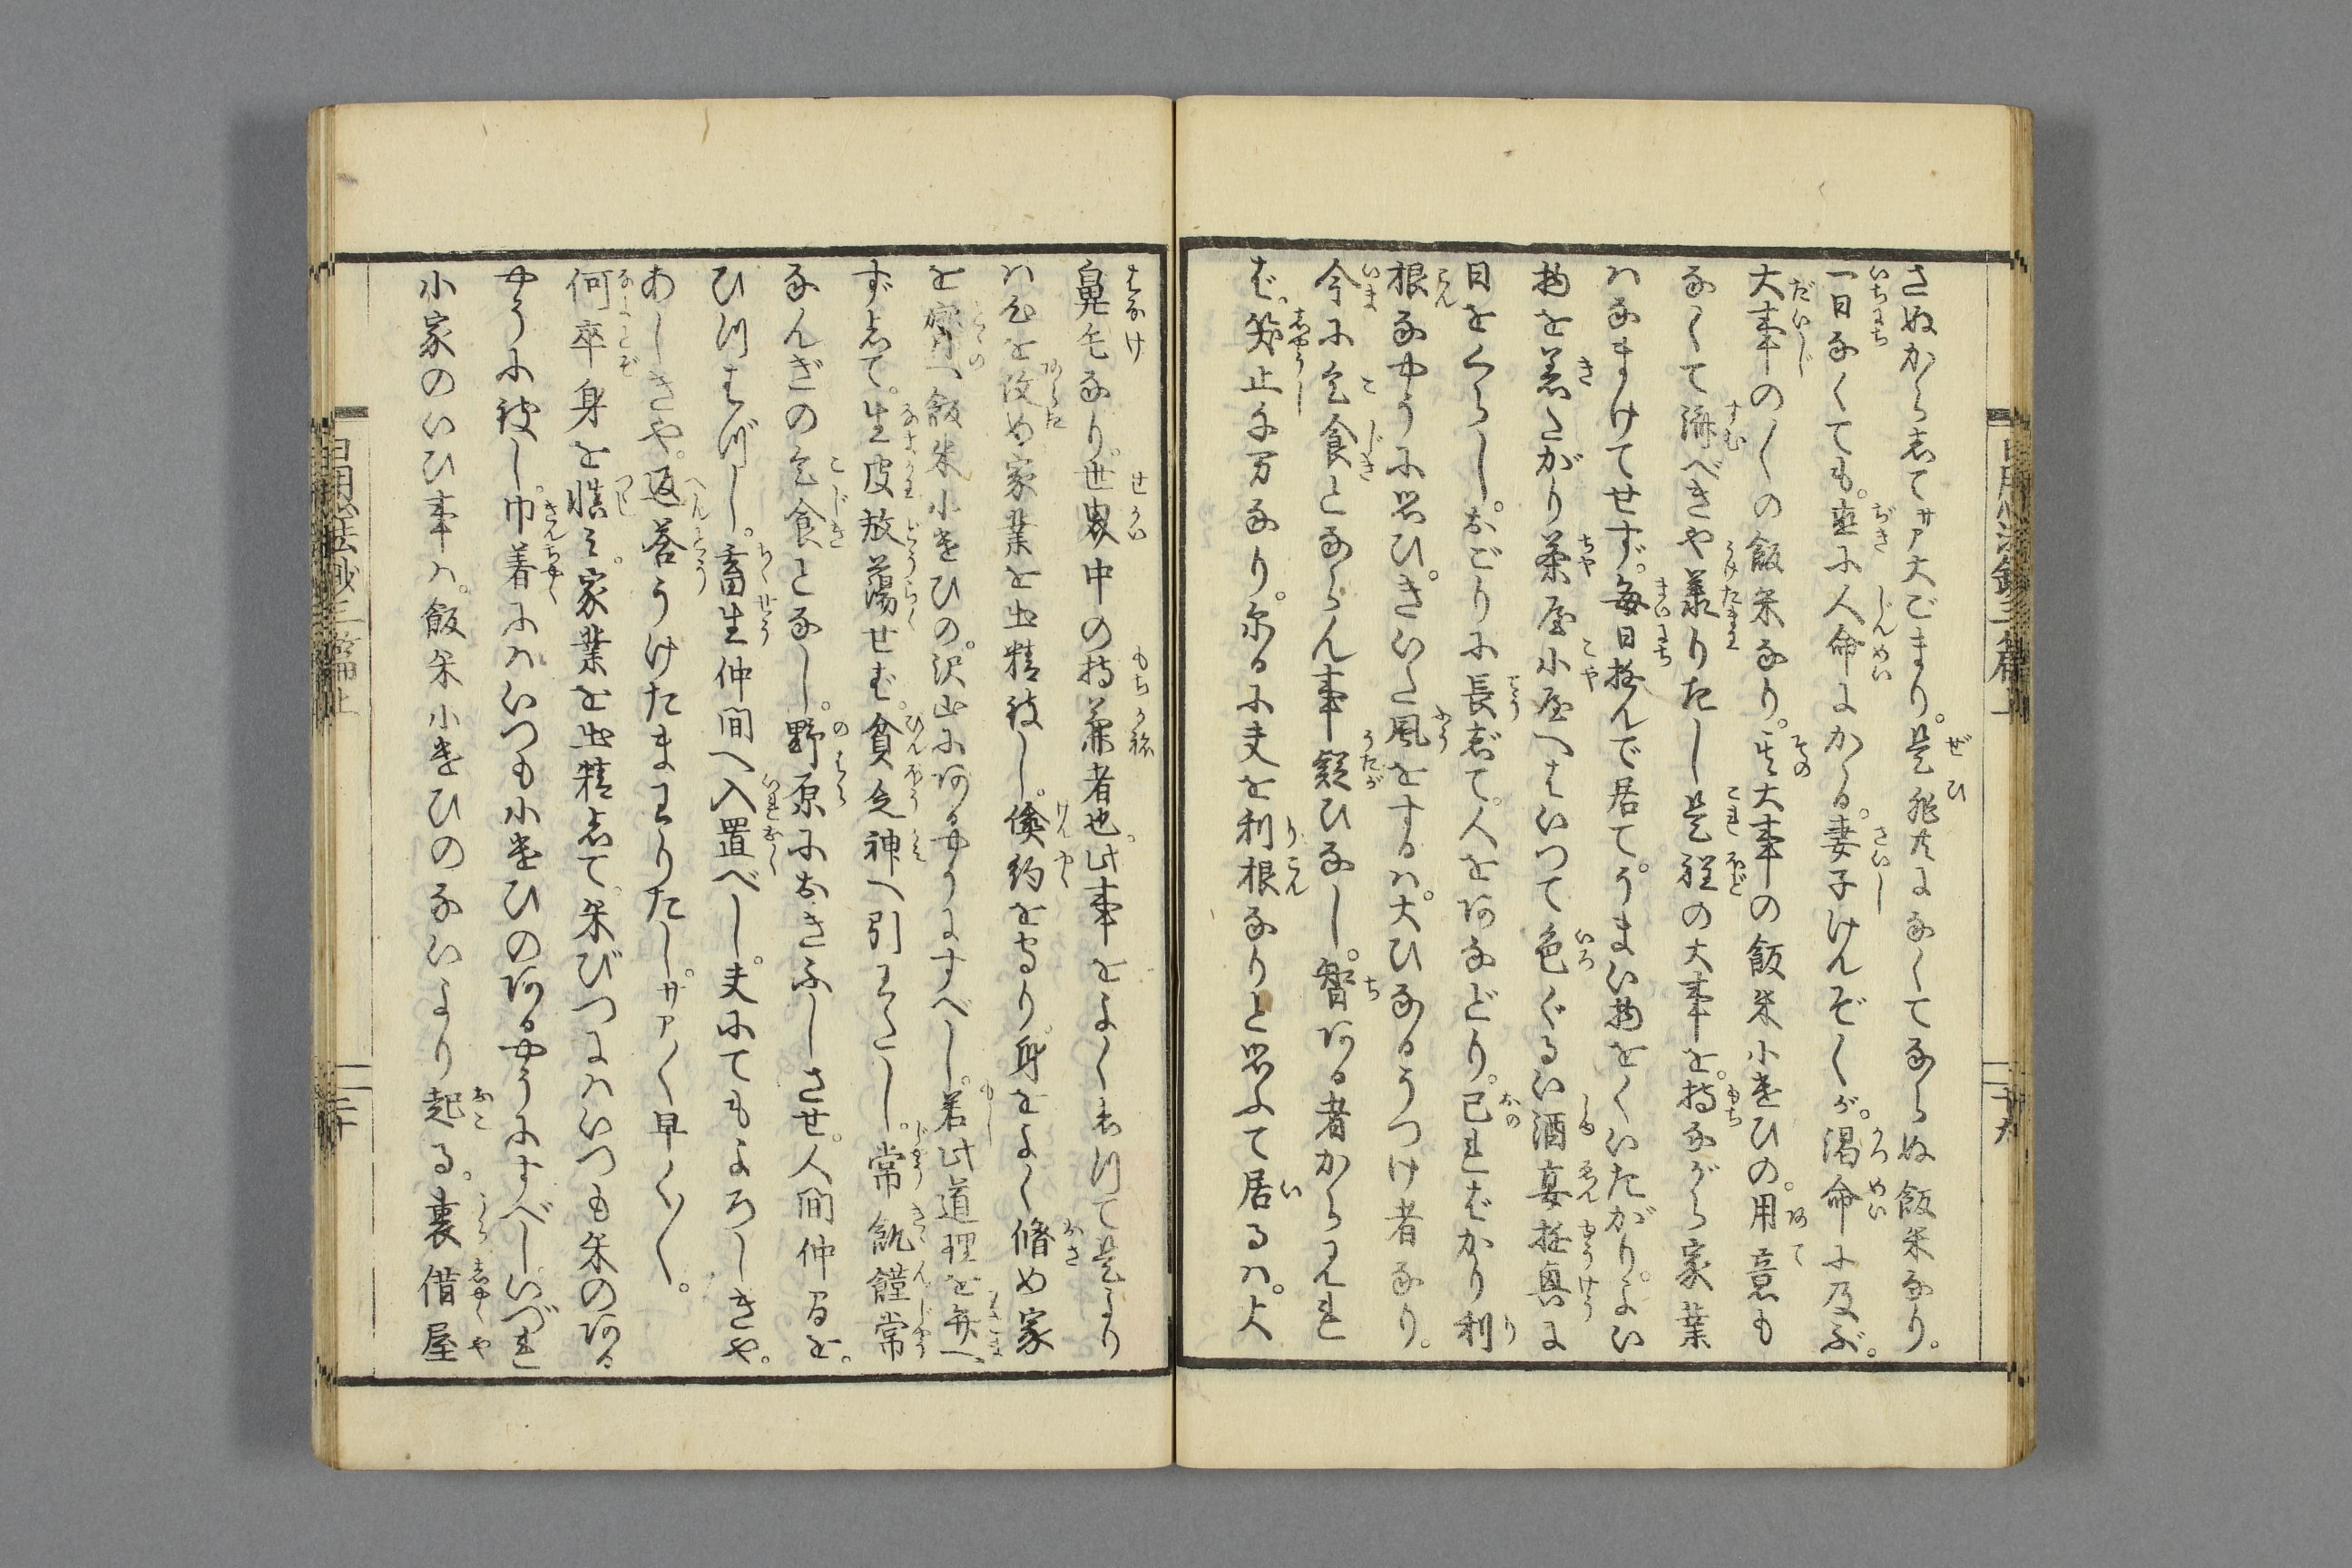 さぬからしてサア大ごまり。是非共になくてならぬ飯米なり。
一日なくても。直に人命にかゝる。妻子けんぞくが。渇命に及ぶ。
大事の〳〵の飯米なり。其大事の飯米小遣ひの。用意も
なくて済べきや義りたし是程の大事を。持ながら家業
ハなまけてせず。毎日遊んで居て。うまい物をくいたがり。よい
物を着たがり茶屋小屋へはいつて色ぐるい酒宴遊興に
日をくらし。おごりに長じて。人をあなどり。己ればかり利
根なやうに思ひ。きいた風をするハ。大ひなるうつけ者なり。
今に乞食とならん事疑ひなし。智ある者からみれ
ば。笑止千万なり。然るに夫を利根なりと思ふて居るハ。大
鼻毛なり。世界中の持兼者也。此事をよく知つて是より
ハ心を改め家業を出精致し。倹約を守り身をよく脩め家
を齊へ飯米小遣ひの。沢山にあるやうにすべし。若此道理を弁へ
ずして。生皮放蕩せば。貧乏神へ引わたし。常飢饉常
なんぎの乞食となし。野原におきふしさせ。人間仲間を。
ひつはづし。畜生仲間へ入置べし。夫にてもよろしきや。
あしきや。返答うけたまわりたし。サア〳〵早〳〵〳〵。
何卒身を慎み。家業を出精して。米びつにハいつも米のある
やうに致し。巾着にハいつも小遣ひのあるやうにすべし。いづれ
小家のいひ事ハ。飯米小遣ひのないより起る。裏借屋